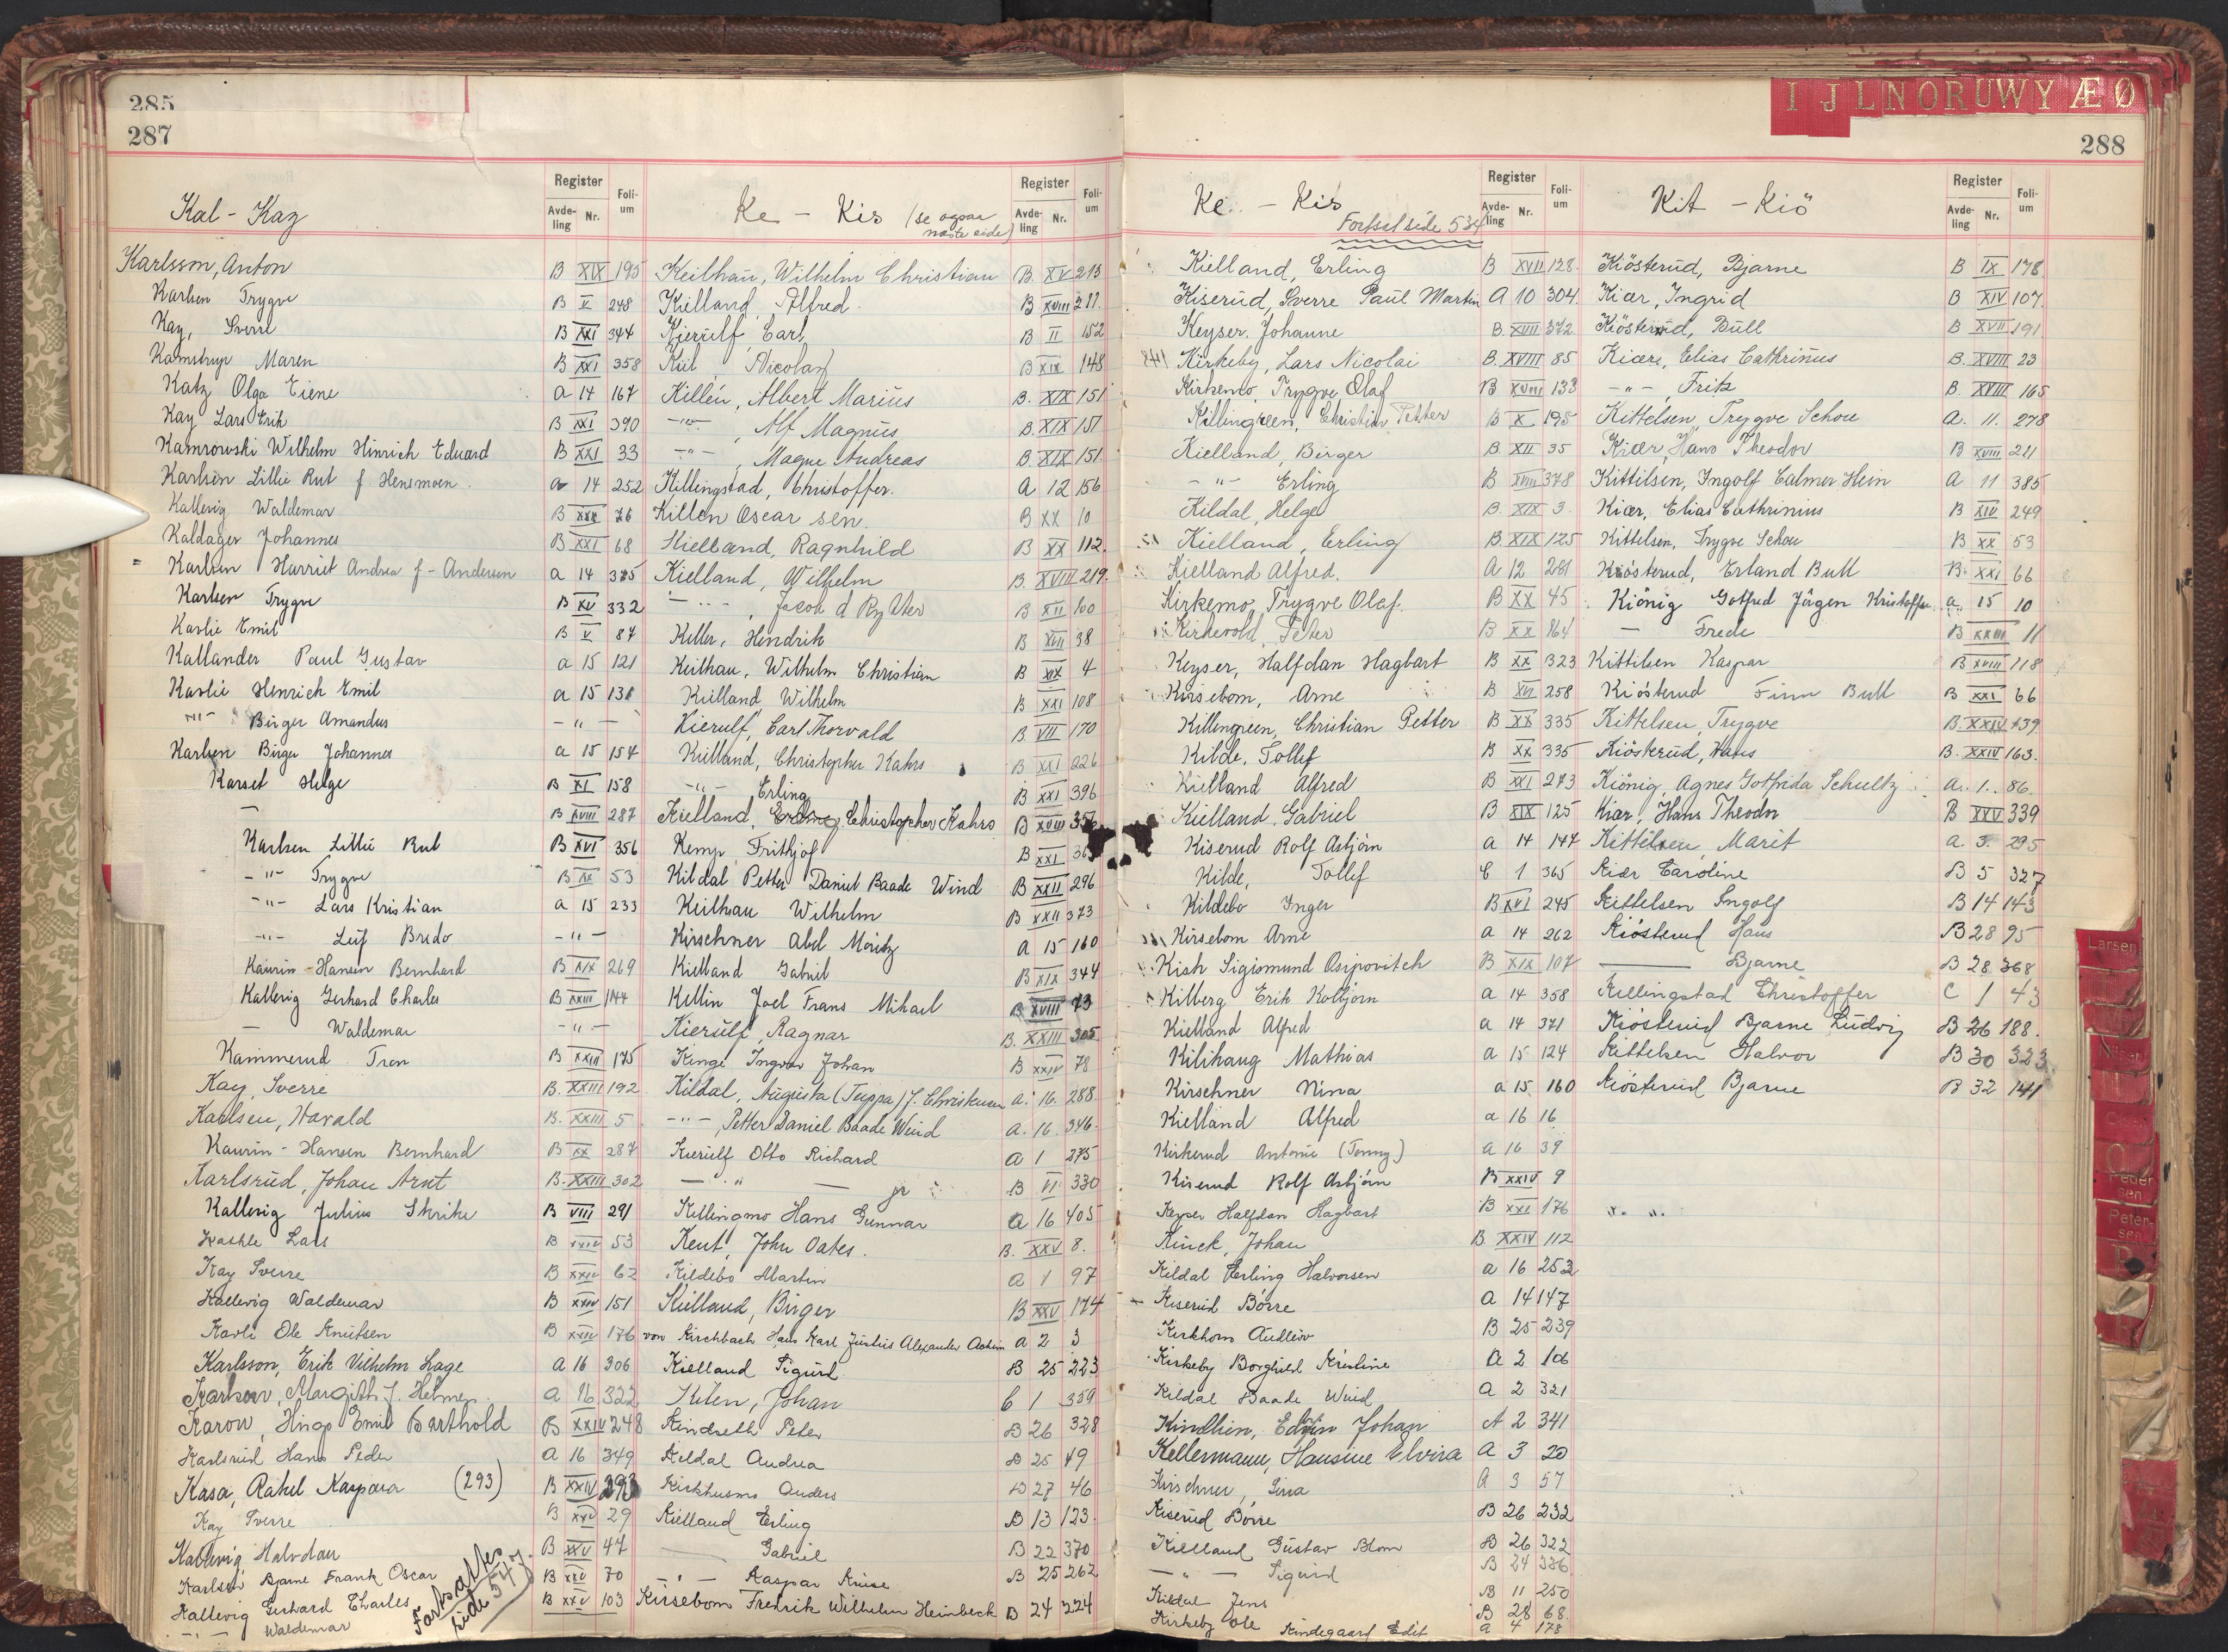 285
287
Register
Foli-
um
Avde-
ling
Nr.
Kal - Kaz
Karlsson, Anton B XIX 195
Karlsen Trygve B V 248
Kay, Sverre B XXI 344
Kamstrup Maren B XXI 358
Katz Olga Eiene a 14 167
Kay Lars Erik B XXI 390
Kamrowski Wilhelm Hinrich Eduard B XXI 33
Karlsen Lillie Rut f. Hensmoen a 14 252
Kallevig Waldemar B XXI 76
Kaldager Johannes B XXI 68
Karlsen Harriet Andrea f - Andersen a 14 375
Karlsen Trygve B XV 332
Karlie Emil B V 87
Kallander Paul Gustav a 15 121
Karlie Henrich Emil a 15 138
-"- Birger Amandus - " -
Karlsen Birger Johannes a 15 154
Karset Helge B XI 158
— B XVIII 287
Karlsen Lillie Rut B XVI 356
-"- Trygve B XX 53
-"- Lars Kristian a 15 233
-"- Leif Bredo -"-
Kaurin-Hansen Bernhard B XIX 269
Kallevig Gerhard Charles B XXIII 144
— Waldemar -"-
Kammerud Tron B XXIII 175
Kay, Sverre B. XXIII 192
Karlsen, Harald B. XXIII 5
Kaurin - Hansen Bernhard B XX 287
Karlsrud, Johan Arnt B. XXIII 302
Kallevig Julius Skrike B VIII 291
Kashle Lars B XXIV 53
Kay Sverre B XXIV 62
Kallevig Waldemar B XXIV 151
Karli Ole Knutsen B XXIV 176
Karlsson, Erik Vilhelm Lage a 16 306
Karlsen, Margith f. Helmer a 16 322
Karow, Hugo Emil Barthold B XXIV 248
Karlsrud Hans Peder a 16 349
Kasa, Rakel Kaspara (293) B XXIV 293
Kay Sverre B XXV 29
Kallevig Halvdan B XXV 47
Karlsen Bjarne Frank Oscar B XXV 70
Kallevig Gerhard Charles B XXV 103
-"- Waldemar
Fortsattes
side 547.
Register
Foli-
um
Avde-
ling
Nr.
Ke - Kis (se ogsaa
næste side)
Keilhau, Wilhelm Christian B. XV 213
Kielland, Alfred B XVIII 211
Kierulf, Carl B II 152
Kiil, Nicolay B XIX 148
Killén, Albert Marius B. XIX 151
-"- , Alf Magnus B. XIX 151
-"- , Magne Andreas B. XIX 151
Killingstad, Christoffer. A 12 156
Killen Oscar sen. B XX 10
Kielland, Ragnhild B XX 112
Kielland, Wilhelm B. XVIII 219
-"- , Jacob d Rytter B XII 100
Keller, Hendrik B XVII 38
Keilhau, Wilhelm Christian B XIX 4
Kielland, Wilhelm B XXI 108
Kierulf, Carl Thorvald B VII 170
Kielland, Christopher Kahrs B XXI 226
-"- Erling B XXI 396
Kielland, Erling Christopher Kahrs B XVIII
Kemp, Frithjof B XXI
Kildal Petter Daniel Baade Wind B XXII 296
Keilhau Wilhelm B XXII 373
Kirschner Abel Moritz a 15 160
Kielland Gabriel B XIX 344
Kellin Joel Frans Mihael B XVIII 73
Kierulf, Ragnar B. XXIII 305
Kinge Ingvar Johan B XXIV 78
Kildal, Augusta (Tuppa) f. Christensen a. 16. 288
-"- , Petter Daniel Baade Wiid a. 16. 346.
Kierulf Otto Richard a 1 275
— " — jr B VI 330
Killingmo Hans Gunnar a 16 405
Kent, John Oates. B. XXV 8.
Kildebo Martin a 1 97
Kielland, Birger B XXV 174
von Kirchbach, Hans Karl Julius Alexander Achim a 2 3
Kielland Sigurd B 25 223
Kilen, Johan C 1 359
Kindseth Peter B 26 328
Kildal Andrea B 25 49
Kirkhusmo Anders B 27 46
Kielland Erling B 13 123
— Gabriel B 22 370
-"- Kaspar Kruse B 25 262
Kirsebom Fredrik Wilhelm Heinbeck B 24 224
I J L N O R U W Y Æ Ø
288
Register
Foli-
um
Avde-
ling
Nr.
Ke - Kis
Fortsat side 534
Kielland, Erling B XVII 128
Kiserud, Sverre Paul Martin A 10 304
Keyser, Johanne B. XVIII 372
Kirkeby, Lars Nicolai B. XVIII 85
Kirkemo, Trygve Olaf B XVIII 133
Killingreen, Christian Petter B X 195
Kielland, Birger B. XII 35
-"- Erling B XVIII 378
Kildal, Helge B. XIX 3
Kielland, Erling B. XIX 125
Kielland Alfred. A 12 281
Kirkemo, Trygve Olaf. B XX 45
Kirkevold, Peter B XX 164
Keyser, Halfdan Hagbart B XX 323
Kirsebom, Arne B XVI 258
Killengreen, Christian Petter B XX 335
Kilde, Tollef B XX 335
Kielland Alfred B XXI 273
Kielland, Gabriel B XIX 125
Kiserud Rolf Asbjørn a 14 147
Kilde, Tollef C 1 365
Kildebo Inger B XVI 245
Kirsebom Arne a 14 262
Kish Sigismund Osipovitch B XIX 107
Kilberg Erik Kolbjørn a 14 358
Kielland Alfred a 14 371
Kilihaug Mathias a 15 124
Kirschner Nina a 15 160
Kielland Alfred a 16 16
Kirkerud Antonie (Tonny) a 16 39
Kiserud Rolf Asbjørn B XXIV 9
Keyser Halfdan Hagbart B XXI 176
Kinck, Johan B. XXIV 112
Kildal Erling Halvorsen a 16 252
Kiserud Børre a 14 147
Kirkhorn Audleiv B 25 239
Kirkeby Borghild Kristine a 2 106
Kildal Baade Wiid a 2 321
Kindlien, Edvin Johan A 2 341
Kellermann, Hansine Elvira A 3 20
Kirschner, Gina a 3 57
Kiserud Børre B 26 232
Kielland Gustav Blom B 26 322
-"- Sigurd B 24 336
Kildal Jens B 11 250
Kirkeby Ole B 28 68
Kindegaard Edit a 4 178
Register
Foli-
um
Avde-
ling
Nr.
Kit - Kiö
Kiösterud, Bjarne B IX 178
Kiær, Ingrid B XIV 107
Kiösterud, Bull B XVII 191
Kiær, Elias Cathrinus B. XVIII 23
-"- , Fritz B. XVIII 165
Kittelsen, Trygve Schou A. 11. 278
Kiær, Hans Theodor B XVIII 221
Kittilsen, Ingolf Calmer Hein A 11 385
Kiær, Elias Cathrinius B XIV 249
Kittelsen, Trygve Schou B XX 53
Kiösterud, Erland Bull B. XXI 66
Kiönig Gotfred Jörgen Kristoffer a 15 10
— Frede B XXIII 11
Kittilsen Kaspar B XVIII 118
Kiösterud Finn Bull B XXI 66
Kittelsen, Trygve B. XXIV 139
Kiösterud, Hans B. XXIV 163.
Kiönig, Agnes Gotfrida Schultz A. 1. 86.
Kiær, Hans Theodor B XXV 339
Kittelsen, Marit a. 3 295
Kiær Caroline B 5 327
Kittelsen Ingolf B 14 143
Kiösterud Hans B 28 95
— Bjarne B 28 368
Killingstad Christoffer C 1 43
Kiösterud Bjarne Ludvig B 26 188.
Kittelsen Halvor B 30 323
Kiösterud Bjarne B 32 141
Larsen
Peder
sen
Peter-
sen